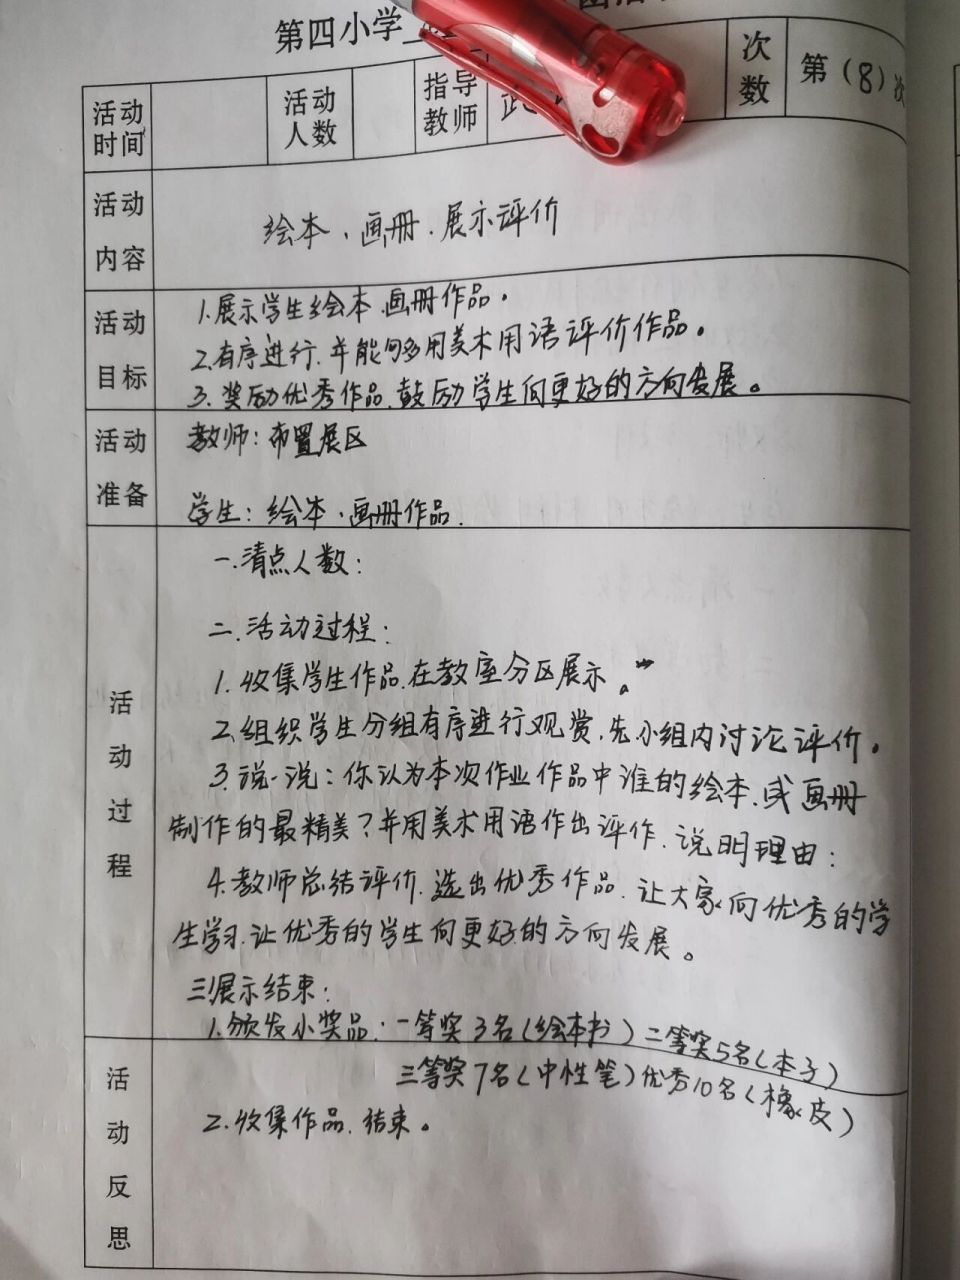 第四小学
活动时间 活动人数 指导教师 武 次数 第（8）次
活动内容
绘本、画册、展示评价
活动目标
1.展示学生绘本、画册作品。
2.有序进行、并能够多用美术用语评价作品。
3.奖励优秀作品、鼓励学生向更好的方向发展。
活动准备
教师：布置展区
学生：绘本、画册作品.
活动过程
一.清点人数：
二.活动过程：
1.收集学生作品.在教室分区展示。
2.组织学生分组有序进行观赏.先小组内讨论评价。
3.说一说：你认为本次作业作品中谁的绘本、或画册
制作的最精美？并用美术用语作出评作.说明理由：
4.教师总结评价.选出优秀作品.让大家向优秀的学
生学习.让优秀的学生向更好的方向发展。
三.展示结束：
1.颁发小奖品：一等奖3名（绘本书）二等奖5名（本子）
三等奖7名（中性笔）优秀10名（橡皮）
2.收集作品.结束。
活动反思